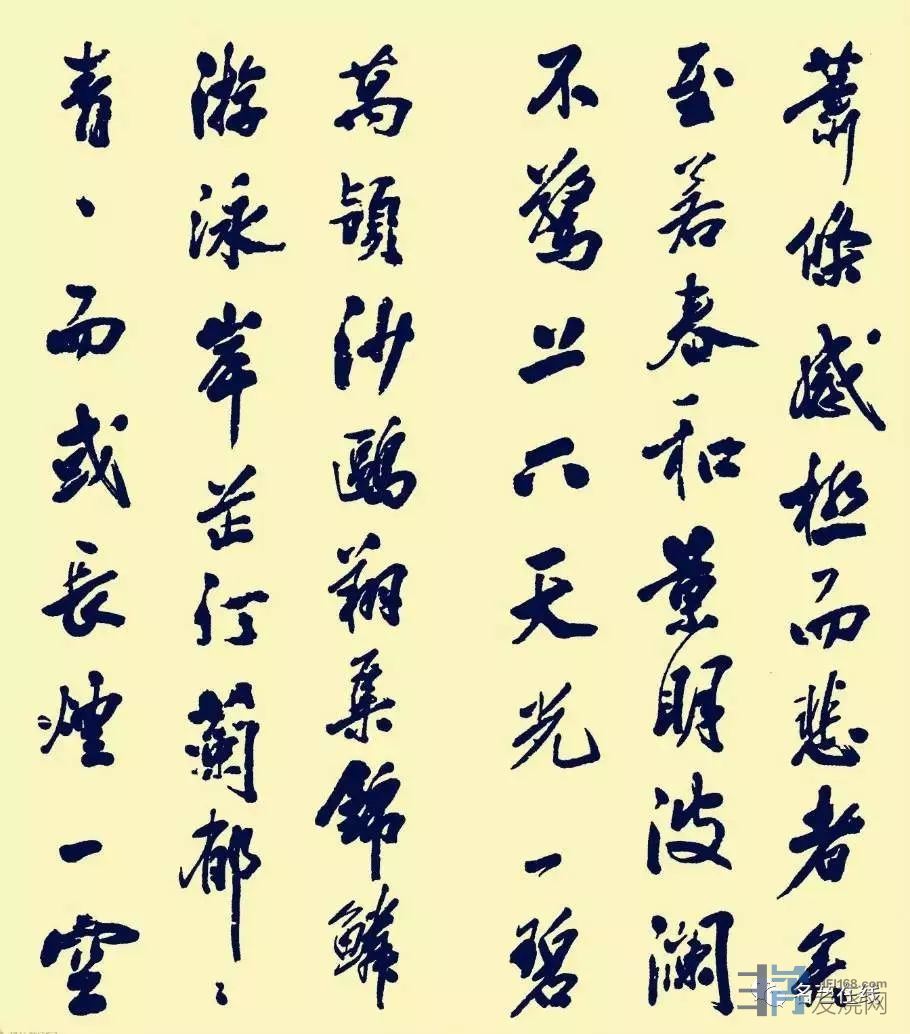 蕭條感極而悲者矣
至若春和景明波瀾
不驚上下天光一碧
萬頃沙鷗翔集錦鱗
游泳岸芷汀蘭郁〻
青、而或長煙一空
名艺在线
发烧网